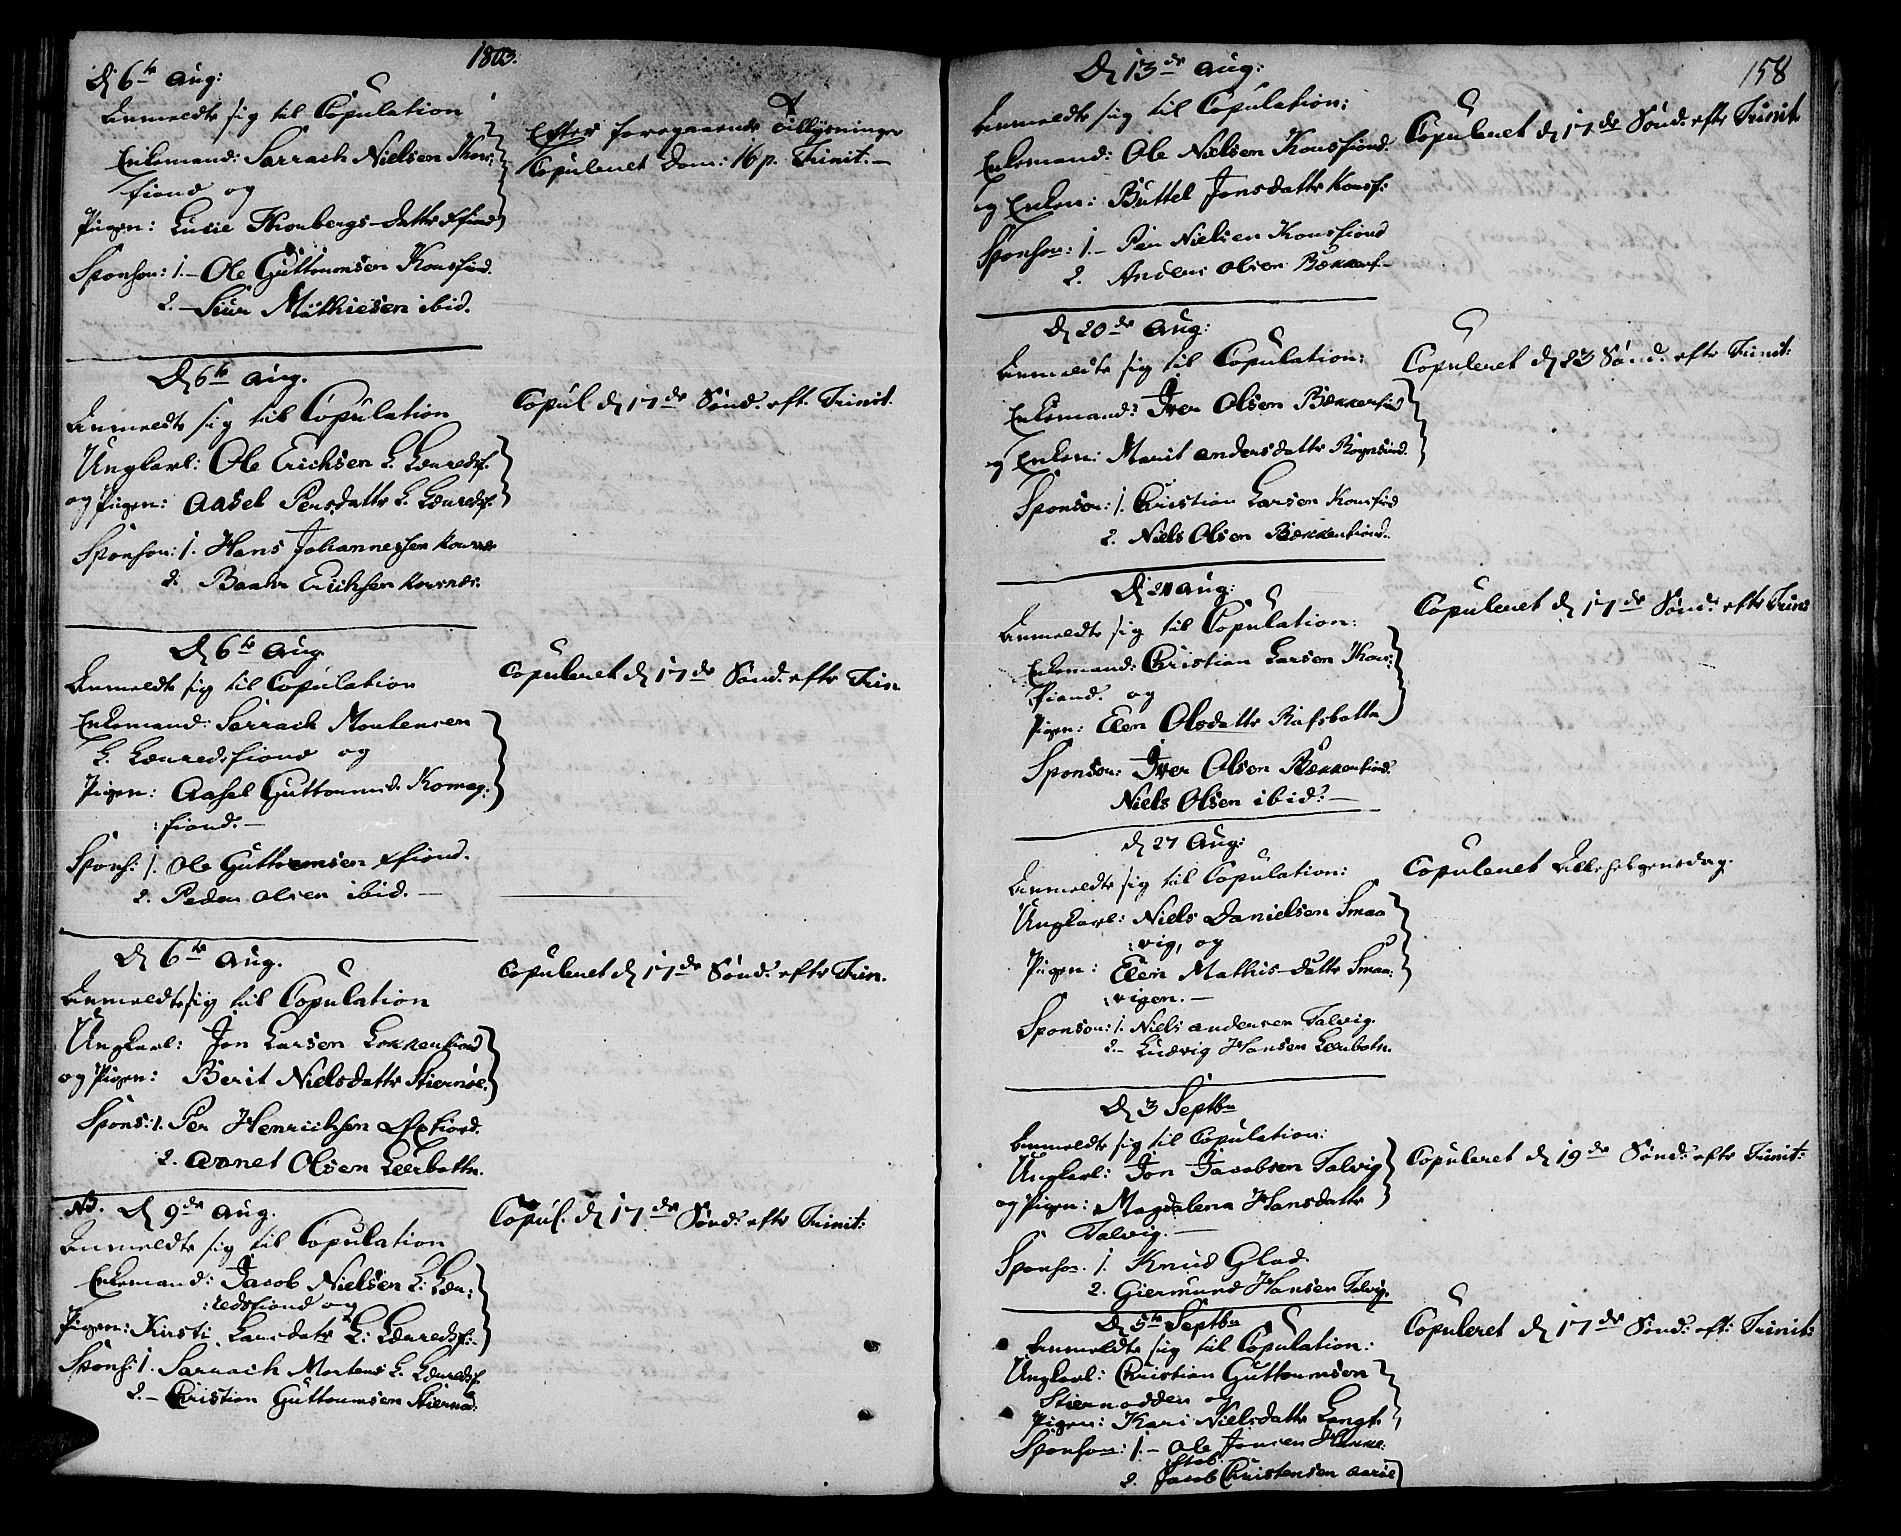 1803.
D 6te Aug:
Anmeldte sig til Copulation
Enkemand: Sarrach Nielsen Kors:
fiord og
Pigen: Lucie Thorbergs-Datter fiord
Sponsor: 1.- Ole Guttormsen Korsfiord.
2.- Siur Mathiesen ibid.
Efter foregaaende Tillysninger
Copuleret Dom: 16 p. Trinit:-
D 6te Aug.
Anmeldte sig til Copulation
Ungkarl: Ole Erichsen L. Læredsf.
og Pigen: Aasel Persdatter L. Læredsf.
Sponsor: 1. Hans Johannessen
2. Erichsen
Copul d 17de Sønd. eft. Trinit.
D 6te Aug.
Anmeldte sig til Copulation
Enkemand: Sarrach Mortensen
L. Læredsfiord og
Pigen: Aasel Guttormsd. Komag:
:fiord.-
Spons: 1. Ole Guttormsen fiord.
2. Peder Olsen ibid.-
Copuleret d 17de Sønd. efter Trin
D 6te Aug.
Anmeldte sig til Copulation
Ungkarl: Jon Larsen Lekkenfiord
og Pigen: Berit Nielsdatter Stiernøe.
Spons: 1. Per Henrichsen
2. Arnet Olsen Leerbotten.
Copuleret d 17de Sønd. efter Trin.
No. D 9de Aug.
Anmeldte sig til Copulation
Enkemand: Jacob Nielsen L: Læ:
:redsfiord og
Pigen: Kirsti Larsdatr L: Læredsf:
Spons: 1. Sarrach Mortens L. Læredsf.
2.- Christian Guttormsen Stiernød:
Copul. d 17de Sønd. efter Trinit:
158
D 13de Aug:
Anmeldte sig til Copulation:
Enkemand: Ole Nielsen Korsfiord.
og Enken: Buttel Jonsdatter Korsf:
Sponsor: 1.- Per Nielsen Korsfiord
2. Anders Olsen Bekkerf-
Copuleret d 17de Sønd: efter Trinit
D 20de Aug:
Anmeldte sig til Copulation:
Enkemand: Iver Olsen Bekkerfiord
og Enken: Marit Andersdatter Rognsund.
Sponsor: 1. Christian Larsen Korsfiord
2. Niels Olsen Bekkerfiord.
Copuleret d 23 Sønd. efter Trinit:
D 21 Aug:
Anmeldte sig til Copulation:
Enkemand: Christian Larsen Kors:
:fiord. og
Pigen: Elen Olsdatter Rafsbotten
Sponsor: Iver Olsen Bekkerfiord.
Niels Olsen ibid:-
Copuleret d 17de Sønd: efter Trinit
d 27 Aug:
Anmeldte sig til Copulation:
Ungkarl: Niels Danielsen Smaa
:vig, og
Pigen: Elen Mathis-Datter Smaa:
:vigen.-
Sponsor: 1. Niels Andersen Talvig.
2.- Ludvig Hansen Leerbotn.
Copuleret Allehelgensdag.
D 3 Septbr
Anmeldte sig til Copulation:
Ungkarl: Jon Jacobsen Talvig
og Pigen: Magdalena Hansdatter
Talvig.-
Sponsor. 1. Knud Glad.
2. Giermund Hansen Talvig.
Copuleret d 19de Sønd: efter Trinit:
D 5te Septbr
Anmeldte sig til Copulation:
Ungkarl: Christian Guttormsen
Stiernodden og
Pigen: Kari Nielsdatter Langf.
Sponsor: 1.- Ole Jonsen
2. Jacob Christensen
Copuleret d 17de Sønd: eft: Trinit: